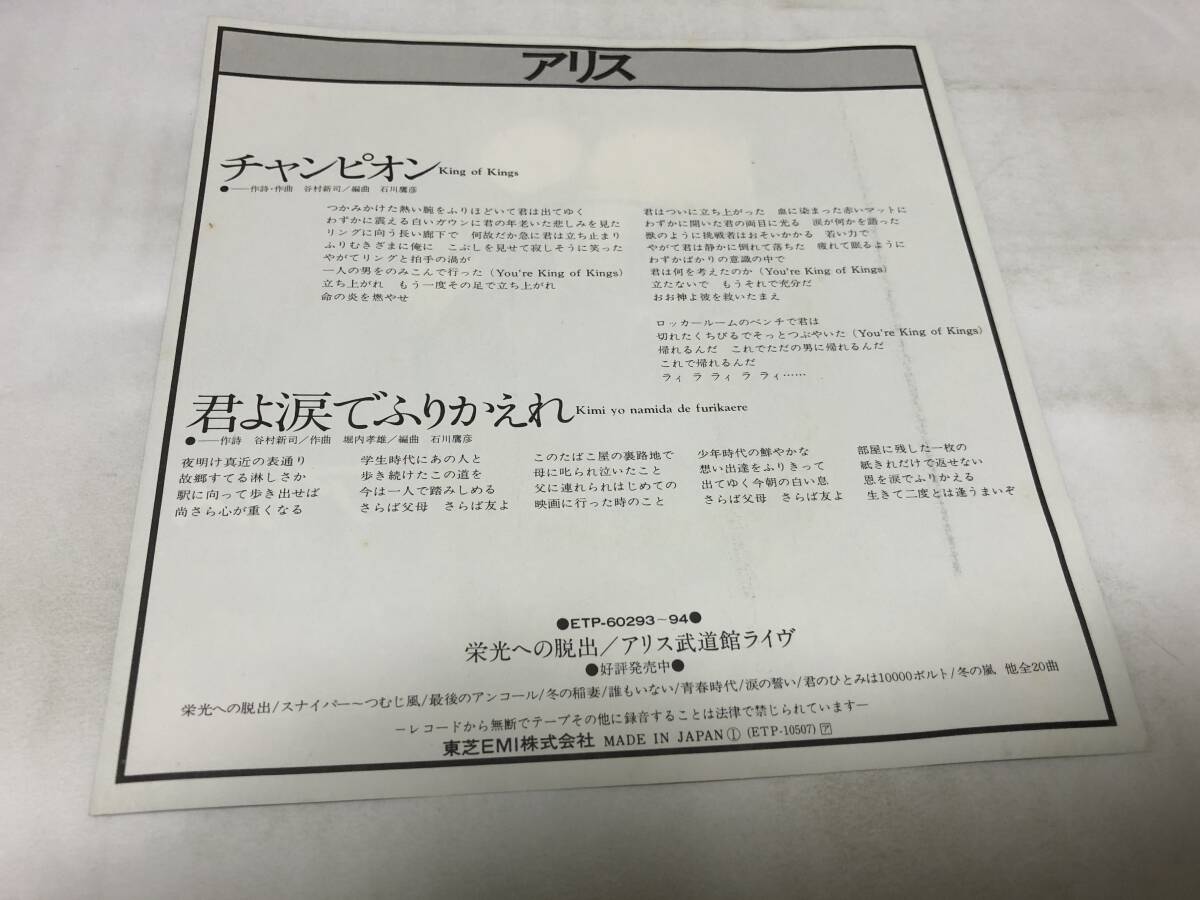 アリス
チャンピオン King of Kings
●——作詩・作曲　谷村新司／編曲　石川鷹彦
つかみかけた熱い腕をふりほどいて君は出てゆく
わずかに震える白いガウンに君の年老いた悲しみを見た
リングに向う長い廊下で　何故だか急に君は立ち止まり
ふりむきざまに俺に　こぶしを見せて寂しそうに笑った
やがてリングと拍手の渦が
一人の男をのみこんで行った (You're King of Kings)
立ち上がれ　もう一度その足で立ち上がれ
命の炎を燃やせ
君はついに立ち上がった　血に染まった赤いマットに
わずかに開いた君の両目に光る　涙が何かを語った
獣のように挑戦者はおそいかかる　若い力で
やがて君は静かに倒れて落ちた　疲れて眠るように
わずかばかりの意識の中で
君は何を考えたのか (You're King of Kings)
立たないで　もうそれで充分だ
おお神よ彼を救いたまえ
ロッカールームのベンチで君は
切れたくちびるでそっとつぶやいた (You're King of Kings)
帰れるんだ　これでただの男に帰れるんだ
これで帰れるんだ
ラィ ラ ラィ ラ ラィ……
君よ涙でふりかえれ Kimi yo namida de furikaere
●——作詩　谷村新司／作曲　堀内孝雄／編曲　石川鷹彦
夜明け真近の表通り
故郷すてる淋しさか
駅に向って歩き出せば
尚さら心が重くなる
学生時代にあの人と
歩き続けたこの道を
今は一人で踏みしめる
さらば父母　さらば友よ
このたばこ屋の裏路地で
母に叱られ泣いたこと
父に連れられはじめての
映画に行った時のこと
少年時代の鮮やかな
想い出達をふりきって
出てゆく今朝の白い息
さらば父母　さらば友よ
部屋に残した一枚の
紙きれだけで返せない
恩を涙でふりかえる
生きて二度とは逢うまいぞ
●ETP-60293~94●
栄光への脱出／アリス武道館ライヴ
●好評発売中●
栄光への脱出/スナイパー~つむじ風/最後のアンコール/冬の稲妻/誰もいない/青春時代/涙の誓い/君のひとみは10000ボルト/冬の嵐、他全20曲
—レコードから無断でテープその他に録音することは法律で禁じられています—
東芝EMI株式会社 MADE IN JAPAN Ⓘ (ETP-10507) ア